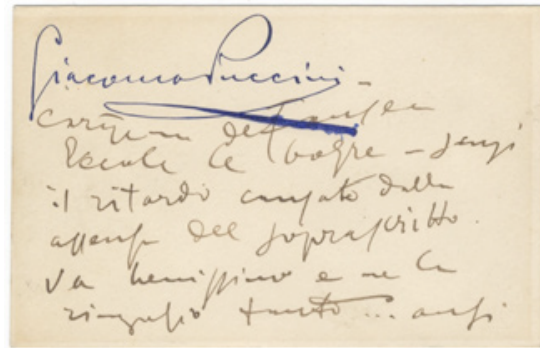 Giacomo Puccini -
Eccole le bozze - scusi
il ritardo causato dalla
assenza del soprascritto.
Va benissimo e ne la
ringrazio tanto ... anzi